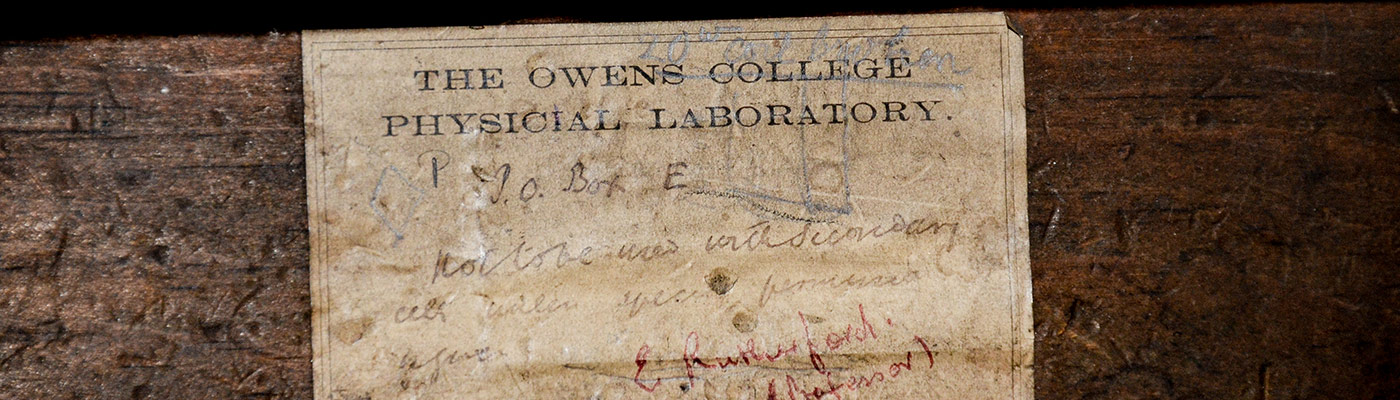 THE OWENS COLLEGE
PHYSICIAL LABORATORY.
P P.O. Box E
Not to be used with secondary
cells unless special permission
is given
E Rutherford.
(Professor)